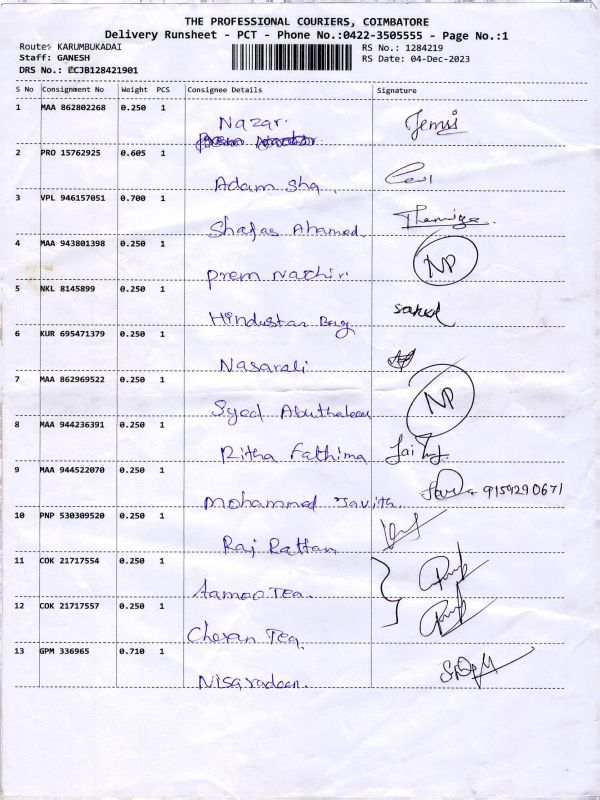 THE PROFESSIONAL COURIERS, COIMBATORE
Delivery Runsheet - PCT - Phone No.:0422-3505555 - Page No.:1
Route: KARUMBUKADAI RS No.: 1284219
Staff: GANESH RS Date: 04-Dec-2023
DRS No.: ECJB128421901
S No Consignment No Weight PCS Consignee Details Signature
1 MAA 862802268 0.250 1
Nazar. Jemsi
2 PRO 15762925 0.605 1
Adam Sha.
3 VPL 946157051 0.700 1
Shafas Ahamed.
4 MAA 943801398 0.250 1
Prem Nathir. NP
5 NKL 8145899 0.250 1
Hindustan Bag
6 KUR 695471379 0.250 1
Nasarali
7 MAA 862969522 0.250 1
Syed Abuthaleem NP
8 MAA 944236391 0.250 1
Ritha Fathima
9 MAA 944522070 0.250 1
Mohammed Javith. 9159290671
10 PNP 530309520 0.250 1
Raj Rattan
11 COK 21717554 0.250 1
Aamoo Tea.
12 COK 21717557 0.250 1
Cheran Tea.
13 GPM 336965 0.710 1
Nisaradeen.